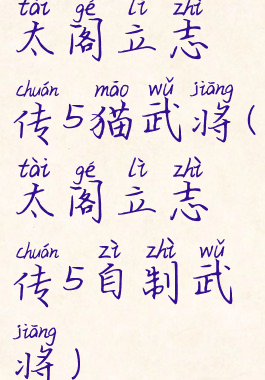 tài gé lì zhì
太阁立志
chuán māo wǔ jiāng
传5猫武将(
tài gé lì zhì
太阁立志
chuán zì zhì wǔ
传5自制武
jiāng
将)